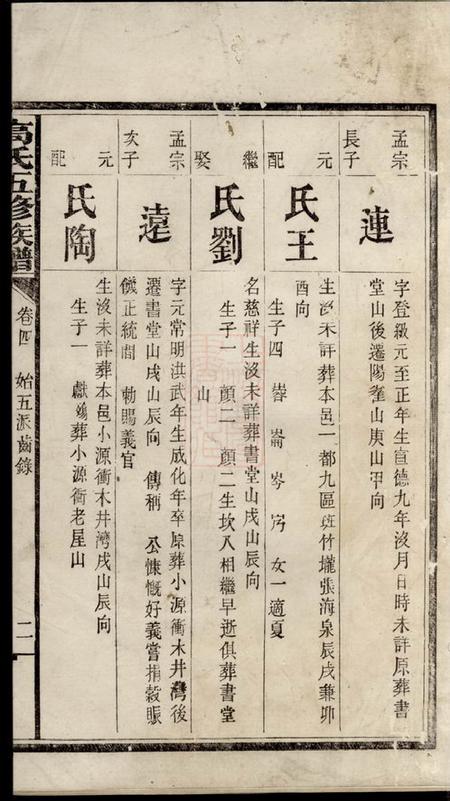 孟宗
長子
連
字登級元至正年生宣德九年沒月日時未詳原葬書
堂山後遷陽 山庚山甲向
元
配
氏王
生沒未詳葬本邑一都九區斑竹壠張海泉辰戌兼卯
酉向
生子四 嵜 崙 岑 岃 女一適夏
繼
娶
氏劉
名慈祥生沒未詳葬書堂山戌山辰向
生子一 顔二 顔二生坎八相繼早逝俱葬書堂
山
孟宗
次子
遠
字元常明洪武年生成化年卒原葬小源衝木井灣後
遷書堂山戌山辰向 傳稱 公慷慨好義嘗捐穀賑
饑正統間 勅賜義官
元
配
氏陶
生沒未詳葬本邑小源衝木井灣戌山辰向
生子一 獻 葬小源衝老屋山
高氏五修族譜
卷四 始五派齒錄
二